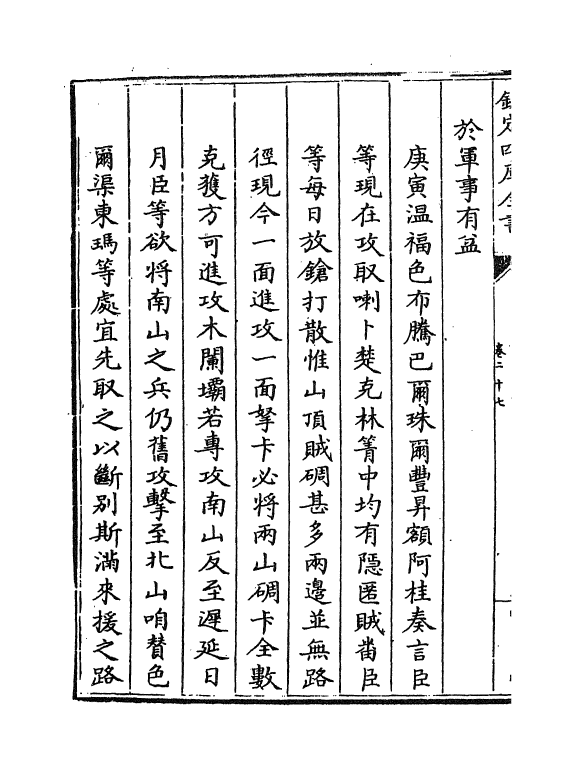 欽定四庫全書
卷二十七
於軍事有益
庚寅温福色布騰巴爾珠爾豐昇額阿桂奏言臣
等現在攻取喇卜楚克林箐中均有隱匿賊畨臣
等每日放鎗打散惟山頂賊碉甚多兩邊並無路
徑現今一面進攻一面拏卡必將兩山碉卡全數
克獲方可進攻木闌壩若專攻南山反至遲延日
月臣等欲將南山之兵仍舊攻擊至北山咱贊色
爾渠東瑪等處宜先取之以斷别斯滿來援之路